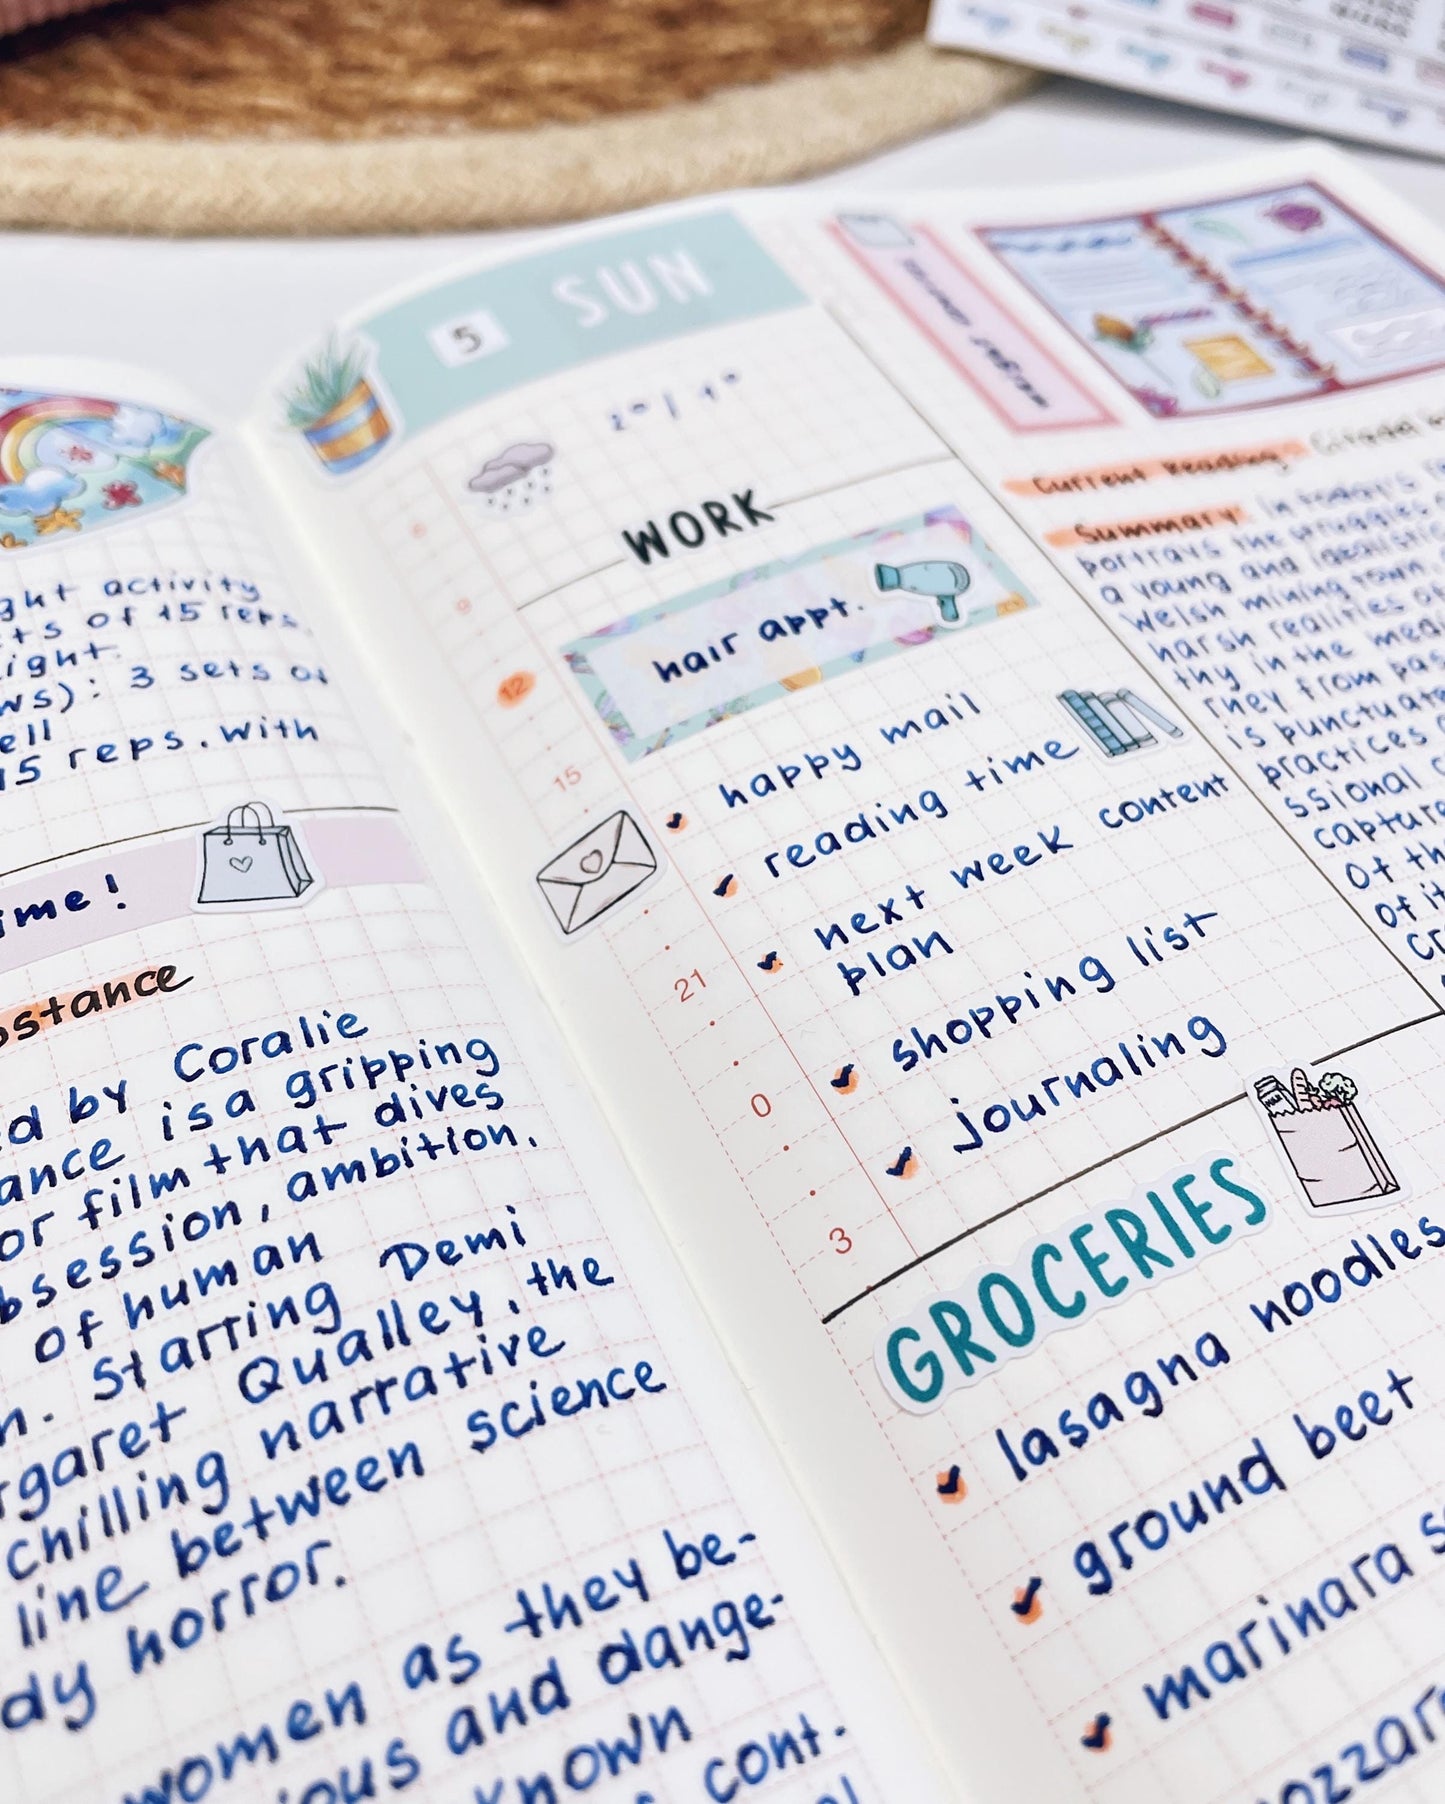 ght activity
ts of 15 reps.
ight.
ws): 3 sets of
ell
15 reps. with
ime!
bstance
ed by Coralie
ance is a gripping
or film that dives
bsession, ambition,
of human
n. Starring Demi
rgaret Qualley, the
chilling narrative
line between science
dy horror.
women as they be-
ious and dange-
known
cont.
5 SUN
2° | 1°
WORK
hair appt.
happy mail
reading time
next week content
plan
shopping list
journaling
6
9
12
15
21
0
3
GROCERIES
lasagna noodles
ground beet
marinara s
ozzar
Current Reading: Citadel
Summary: In today's
portrays the struggles
a young and idealistic
Welsh mining town.
harsh realities
thy in the medi
rney from pas
is punctuate
practices
ssional
capture
of th
of it
cr